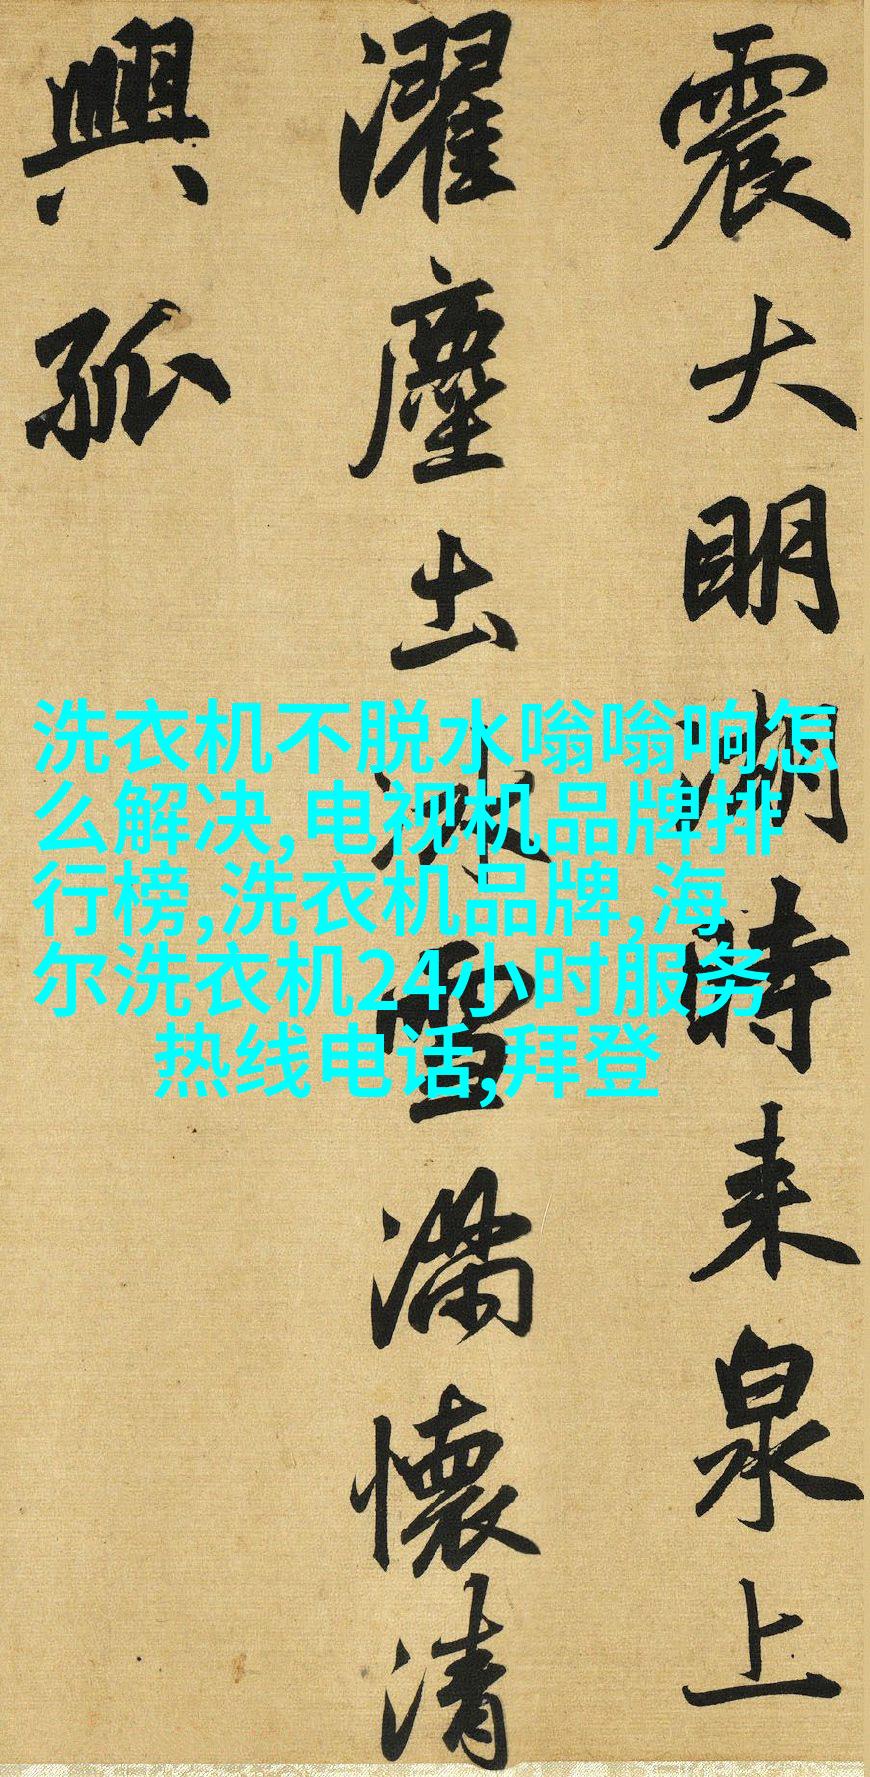 震大明湖時來泉上
濯塵出冰雪滿懷清
興孤
洗衣机不脱水嗡嗡响怎
么解决,电视机品牌排
行榜,洗衣机品牌,海
尔洗衣机24小时服务
热线电话,拜登